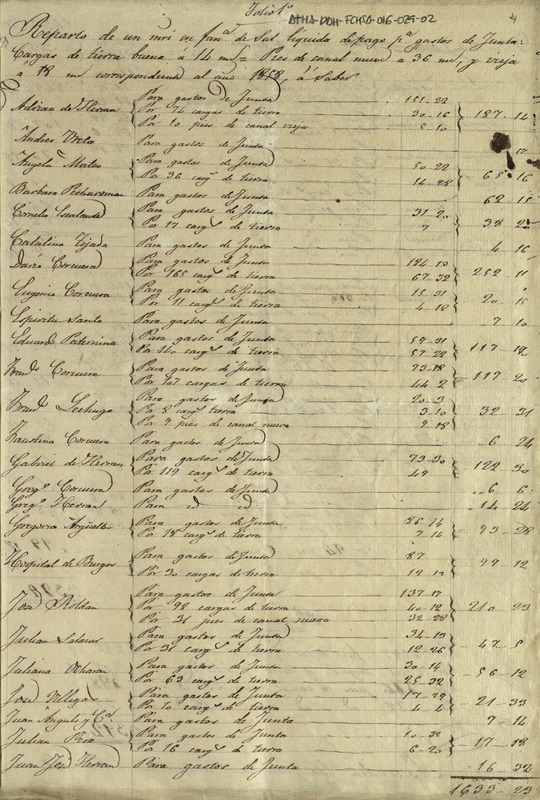 Folio 1º
ATHA-DDH-FCHSA-016-029-02
Reparto de un mrì en fanª de Sal liquida de pago pª gastos de Junta:
Cargas de tierra buena á 14 ms= Pies de canal nuevo a 36 ms, y vieja
a 18 ms correspondiente al año 1858, á Saber
Adrian de Herran Para gastos de Junta 151-22
Por 74 cargas de tierra 30-16 187-14
Por 10 pies de canal vieja 5-10
Andres Ureta Para gastos de Junta 17
Angela Mateo Para gastos de Junta 50-22
Por 36 cargs de tierra 14-28 65-16
Barbara Pecharroman Para gastos de Junta 62 15
Cornelio Escalante Para gastos de Junta 31-20
Por 17 cargs de tierra 7 38 20
Catalina Tejada Para gastos de Junta 4 16
Dario Corcuera Para gastos de Junta 184-13
Por 165 cargs de tierra 67-32 252 11
Eugenio Corcuera Para gastos de Junta 15-31
Por 11 cargs de tierra 4-18 20-15
Espiritu Santo Para gastos de Junta 7 10
Eduard Paternina Para gastos de Junta 59-31
Por 140 cargs de tierra 57-22 117-19
Corcuera Para gastos de Junta 73-18
Por 107 cargas de tierra 44 2 117 20
Lechuga Para gastos de Junta 20-3
Por 8 cargs tierra 3-10 32 31
Por 9 pies de canal nuevo 9-18
Faustino Corcuera Para gastos de Junta 6 24
Gabriel de Herran Para gastos de Junta 73-30
Por 119 cargs de tierra 49 122 30
Gregº Corcuera Para gastos de Junta 6 6
Gregº Herran Para id id 14 24
Gregoria Para gastos de Junta 86-14
Por 18 cargs de tierra 7 14 93-28
Hospital de Burgos Para gastos de Junta 87
Por 30 cargas de tierra 12 12 99-12
José Roldan Para gastos de Junta 137-17
Por 98 cargas de tierra 40-12 210 23
Por 31 pies de canal nuevo 32-28
Julian Salazar Para gastos de Junta 34-13
Por 31 cargs de tierra 12-26 47-5
Juliana Ochara Para gastos de Junta 30-14
Por 63 cargs de tierra 25-32 56-12
José Villegas Para gastos de Junta 17-29
Por 10 cargs de tierra 4-4 21-33
Juan Angulo y Cª Para gastos de Junta 7-14
Julian Para gastos de Junta 10-32
Por 16 cargs de tierra 6-20 17-18
Juan José Herran Para gastos de Junta 16 32
1633 23